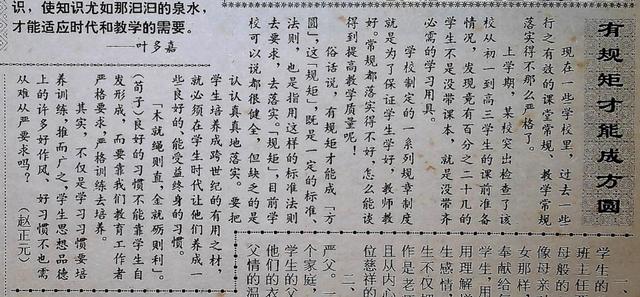 识,使知识尤如那汩汩的泉水,
才能适应时代和教学的需要。
——叶多嘉
有规矩才能成方圆
现在一些学校里,过去一些
行之有效的课堂常规、教学常规
落实得不那么严格了。
上学期,某校突出检查了该
校从初一到高三学生的课前准备
情况,发现竟有百分之二十九的
学生不是没带课本,就是没带齐
必需的学习用具。
学校制定的一系列规章制度
就是为了保证学生学好,教师教
好。常规都落实得不好,怎么能谈
得到提高教学质量呢!
俗话说,有规矩才能成“方
圆”,这“规矩”,既是一定的标准、
法则,也是指用这样的标准法则
去要求,去落实。“规矩”,目前学
校可以说都很健全,但缺乏的是
认认真真地落实。要把
学生培养成跨世纪的有用之材,
就必须在学生时代让他们养成一
些良好的、能受益终身的习惯。
“木就绳则直,金就砺则利”。
(荀子)良好的习惯不能靠学生自
发形成,而要靠我们教育工作者
严格要求,严格训练去培养。
其实,不仅是学习习惯要培
养训练,推而广之,学生思想品德
上的许多好作风、好习惯不也需
从难从严要求吗?
(赵正元)
一、
学生的
班主任
母般的
像母亲
女那样,
奉献给
学生,用
用理解增
生感情,
生不仅把
作是老师
且从内心
位慈祥的
二、
严父。
个家庭,
学生的父
他们的衣
父情的温